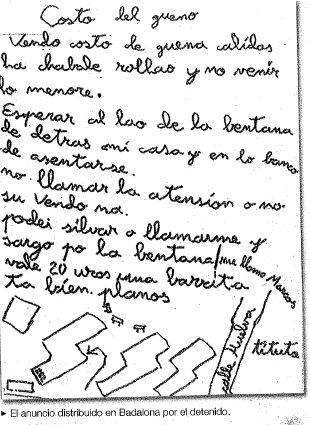 Costo del gueno
Vendo costo de guena calidas
ha chabale rollao y no venir
lo menore.
Esperar al lao de la bentana
de detras mi casa y en lo banco
de asentarse.
no llamar la atension o no
su vendo na.
podei silvar o llamarme y
sargo po la bentana/me llamo Marcos
vale 20 uros una barrita
ta bien. planos
calle Huelva
tituto
► El anuncio distribuido en Badalona por el detenido.